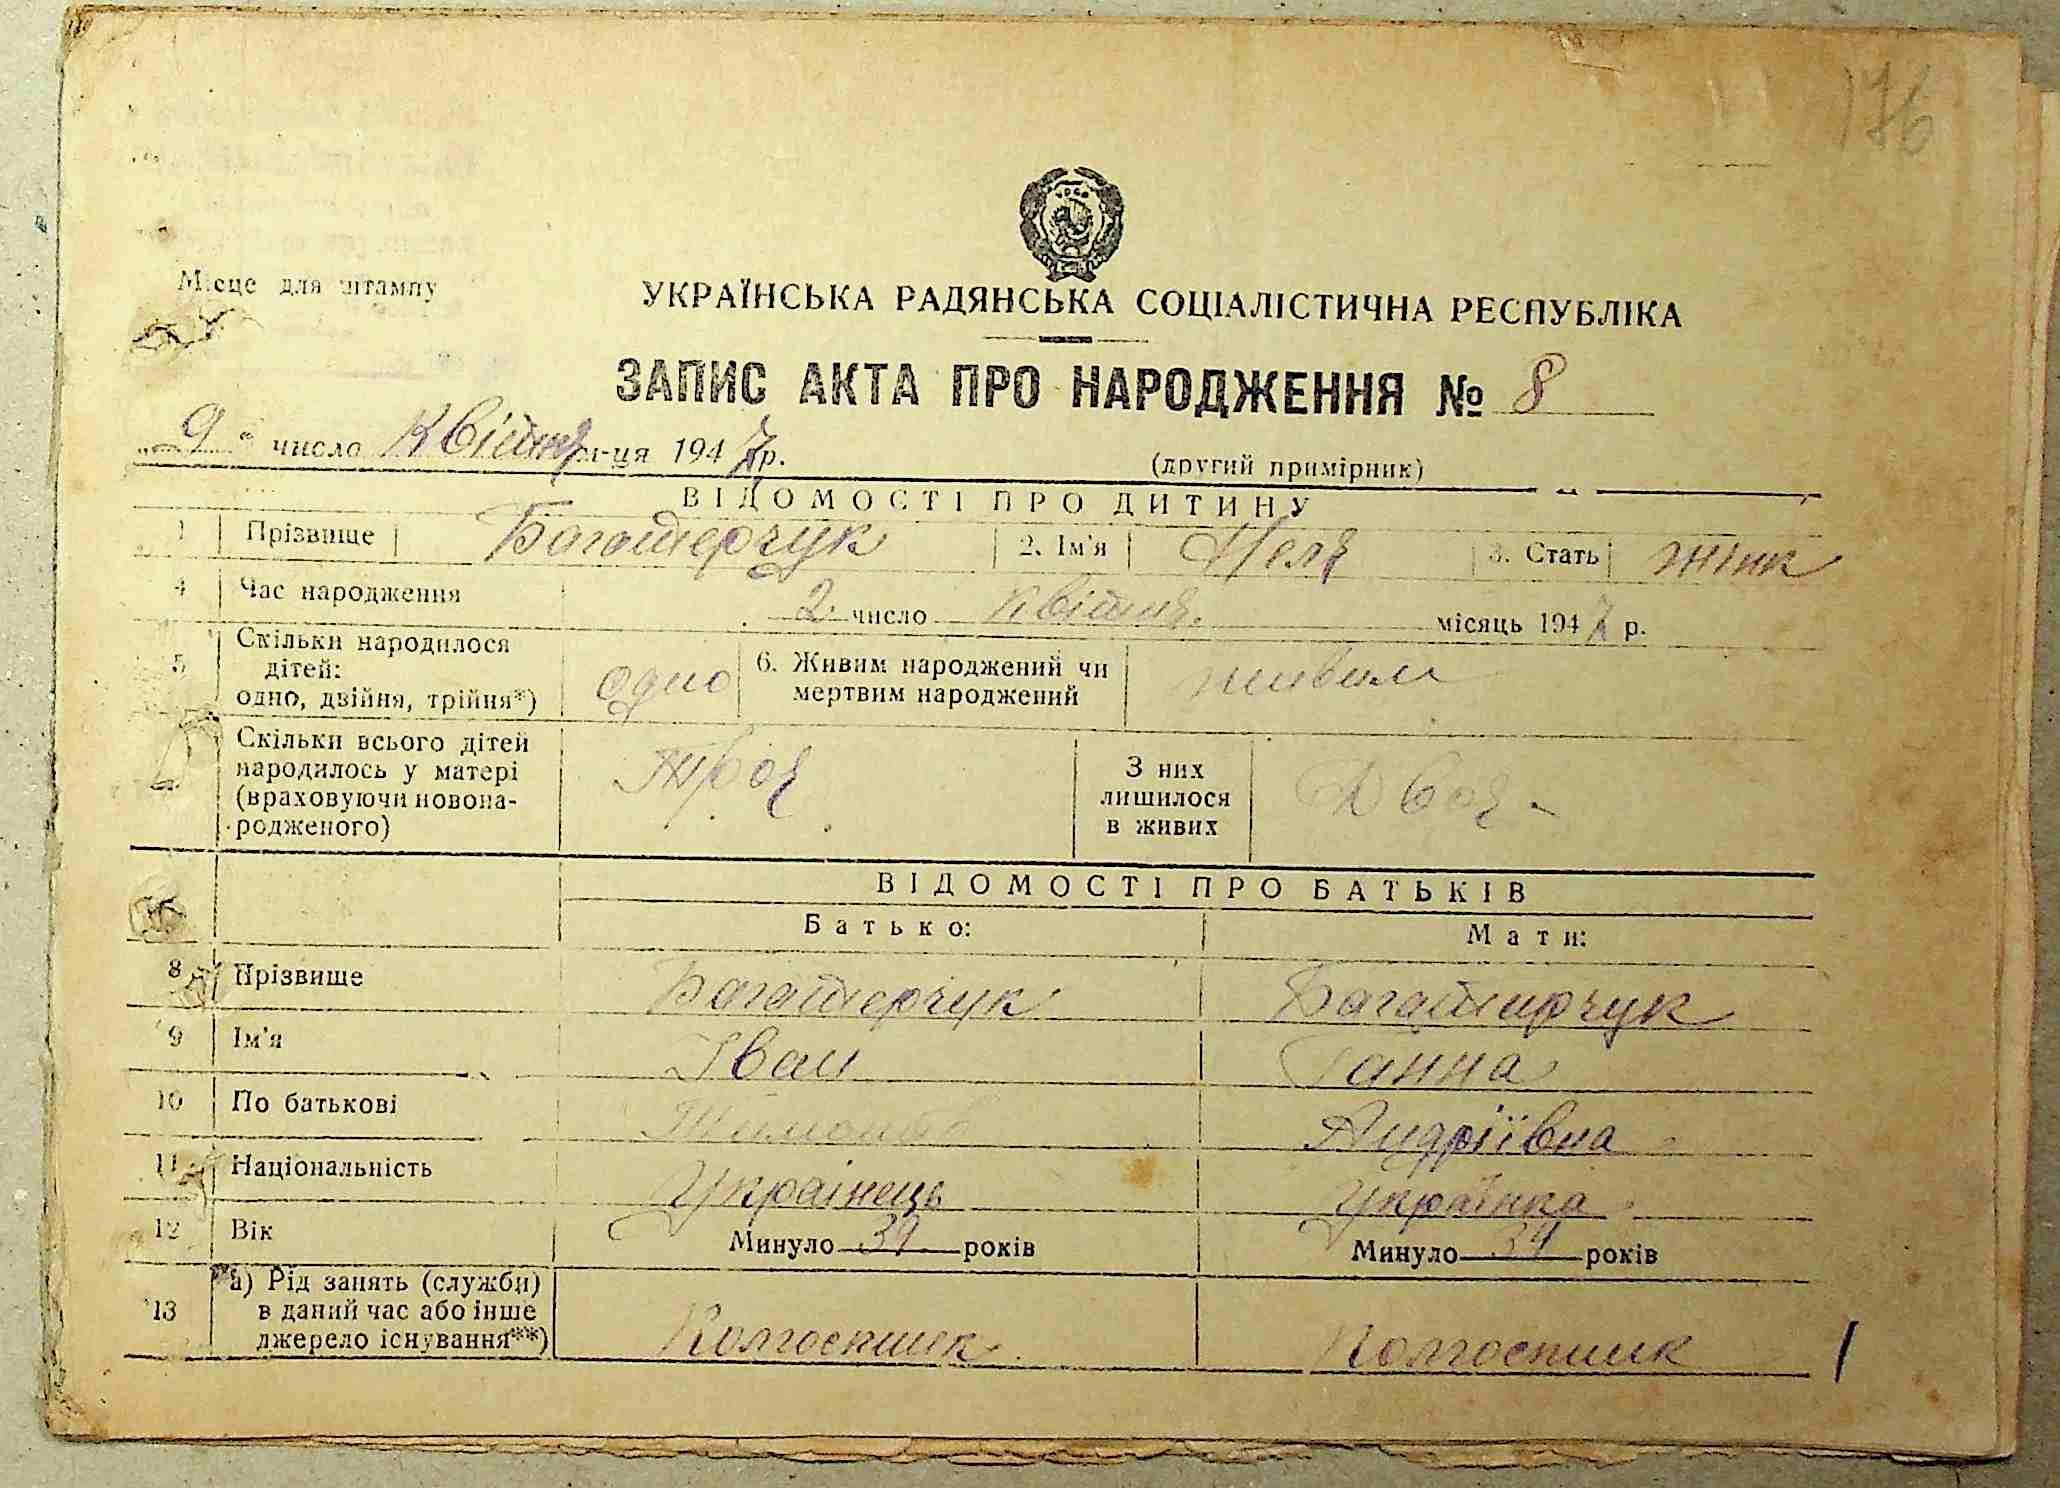 176
Місце для штампу
УКРАЇНСЬКА РАДЯНСЬКА СОЦІАЛІСТИЧНА РЕСПУБЛІКА
ЗАПИС АКТА ПРО НАРОДЖЕННЯ № 8
„9“ число Квітня м-ця 1947 р.
(другий примірник)
ВІДОМОСТІ ПРО ДИТИНУ
1 Прізвище Багатерчук 2. Ім'я Неля 3. Стать жінк
4 Час народження 2 число квітня місяць 1947 р.
5 Скільки народилося дітей: одно, двійня, трійня*) одно 6. Живим народжений чи мертвим народжений живим
Скільки всього дітей народилось у матері (враховуючи новонародженого) Троя З них лишилося в живих Двоя
ВІДОМОСТІ ПРО БАТЬКІВ
Батько: Мати:
8 Прізвище Багатерчук Багатирчук
9 Ім'я Іван Ганна
10 По батькові Андріївна
11 Національність Українець Українка
12 Вік Минуло років Минуло 34 років
13 а) Рід занять (служби) в даний час або інше джерело існування**) Колгоспник Колгоспник